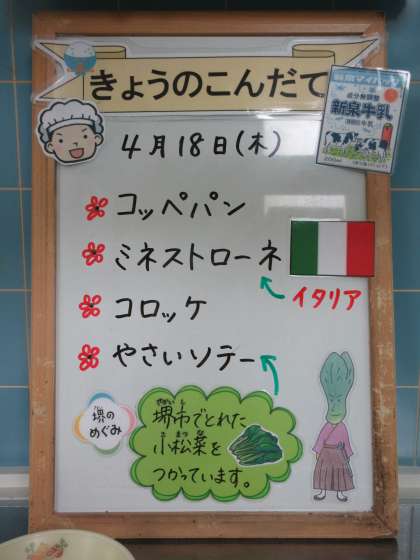 きょうのこんだて
4月18日(木)
新泉牛乳
200ml
コッペパン
ミネストローネ
イタリア
コロッケ
やさいソテー
堺の
めぐみ
堺市でとれた
小松菜を
つかっています。